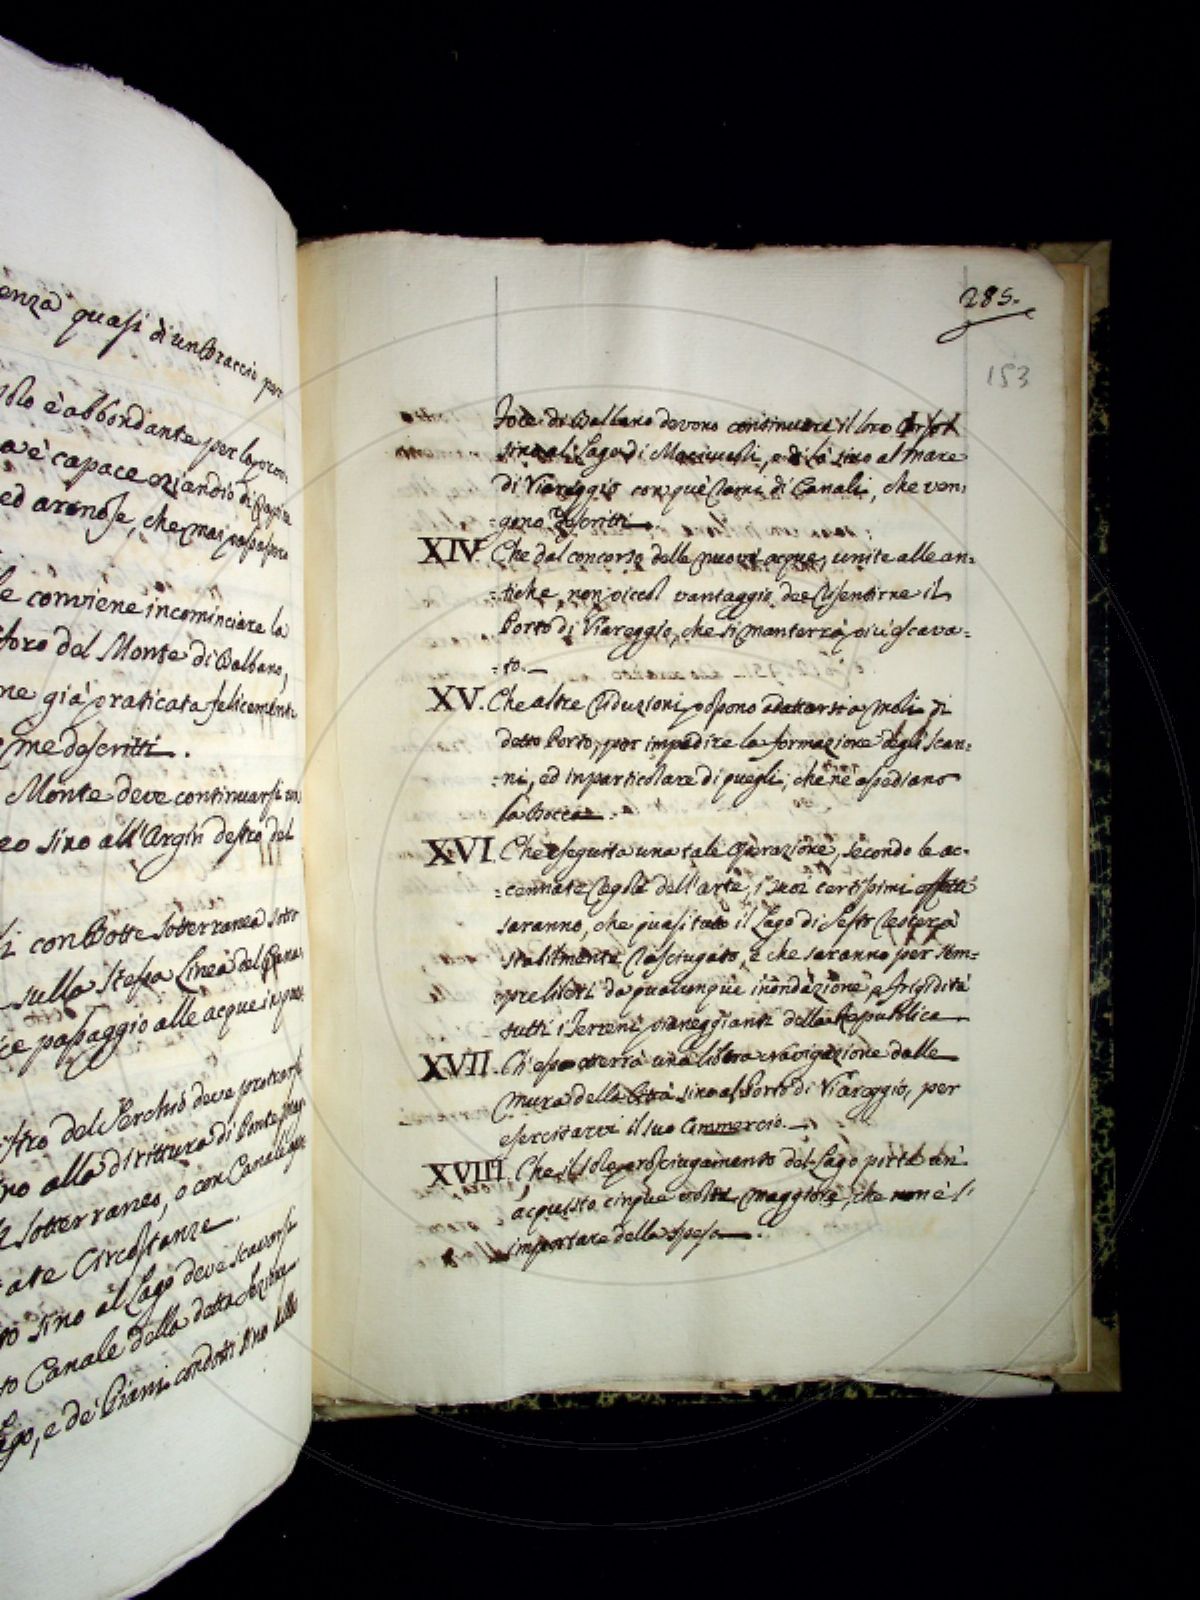 enza quasi di un braccio per
è abbondante per la
a è capace eziandio di
ed arenose, che mai
le conviene incominciare la
foro del Monte di Balbano,
ne già praticata felicemente
me descritti.
Monte deve continuarsi
eo sino all'Argin destro del
con Botte sotterranea sotto
sulla stessa Linea del
ce passaggio alle acque
stro del Serchio deve protrarsi
no alla dirittura di Ponte
sotterraneo, o con
ate Circostanze.
sino al Lago deve scavarsi
to Canale della detta
ago, e de' Piani condotti sino
285.
153
Foce di Balbano devono continuare il loro Corso
sino al Lago di Maciucoli, e di là sino al Mare
di Viareggio con què Rami di Canali, che ven=
=gono descritti.
XIV. Che dal concorso delle nuove acque, unite alle an=
=tiche, non piccol vantaggio dee risentirne il
Porto di Viareggio, che si manterrà più escava=
=to.
XV. Che altre riduzioni possono adattarsi a Moli di
detto Porto, per impedire la formazione degli scan=
=ni, ed in particolare di quegli, che ne assediano
la bocca.
XVI. Che eseguita una tale Operazione, secondo le ac=
=cennate regole dell'arte, i suoi certissimi effetti
saranno, che quasi tutto il Lago di Sesto resterà
stabilmente rasciugato, e che saranno per sem=
=pre liberi da qualunque inondazione, e frigidità
tutti i Terreni pianeggianti della Republica
XVII. Ch'essa otterrà una libera Navigazione dalle
mura della Città sino al Porto di Viareggio, per
esercitarvi il suo Commercio.
XVIII. Che il solo prosciugamento del Lago porta un'
acquisto cinque volte maggiore, che non è l'
importare della spesa.